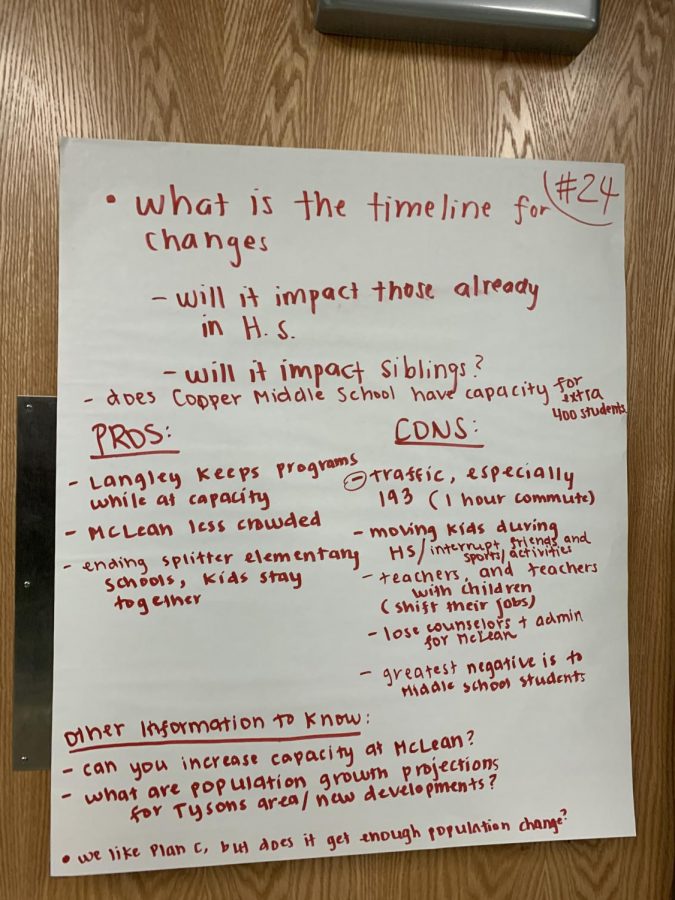 #24
• What is the timeline for
changes
- will it impact those already
in H.S.
- will it impact siblings?
- does Cooper Middle School have capacity for
extra
400 students
PROS:
- Langley keeps programs
while at capacity
- McLean less crowded
- ending splitter elementary
schools, kids stay
together
CONS:
- traffic, especially
193 (1 hour commute)
- moving kids during
HS/interrupt friends and
sports/activities
- teachers, and teachers
with children
(shift their jobs)
- lose counselors + admin
for McLean
- greatest negative is to
Middle school students
Other Information to Know:
- can you increase capacity at McLean?
- what are population growth projections
for Tysons area/new developments?
• we like Plan C, but does it get enough population change?